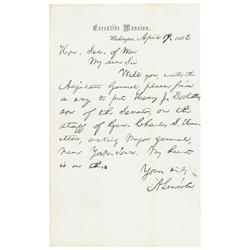 Executive Mansion,
Washington, April 19, 1862
Hon. Sec. of War
My dear Sir
Will you and the
Adjutant General please find
a way to put Henry J.
son of the Senator, on the
staff of Gen. Charles S. Ham-
ilton, acting Major General
near York-Town. My heart
is on this.
Yours truly
A. Lincoln